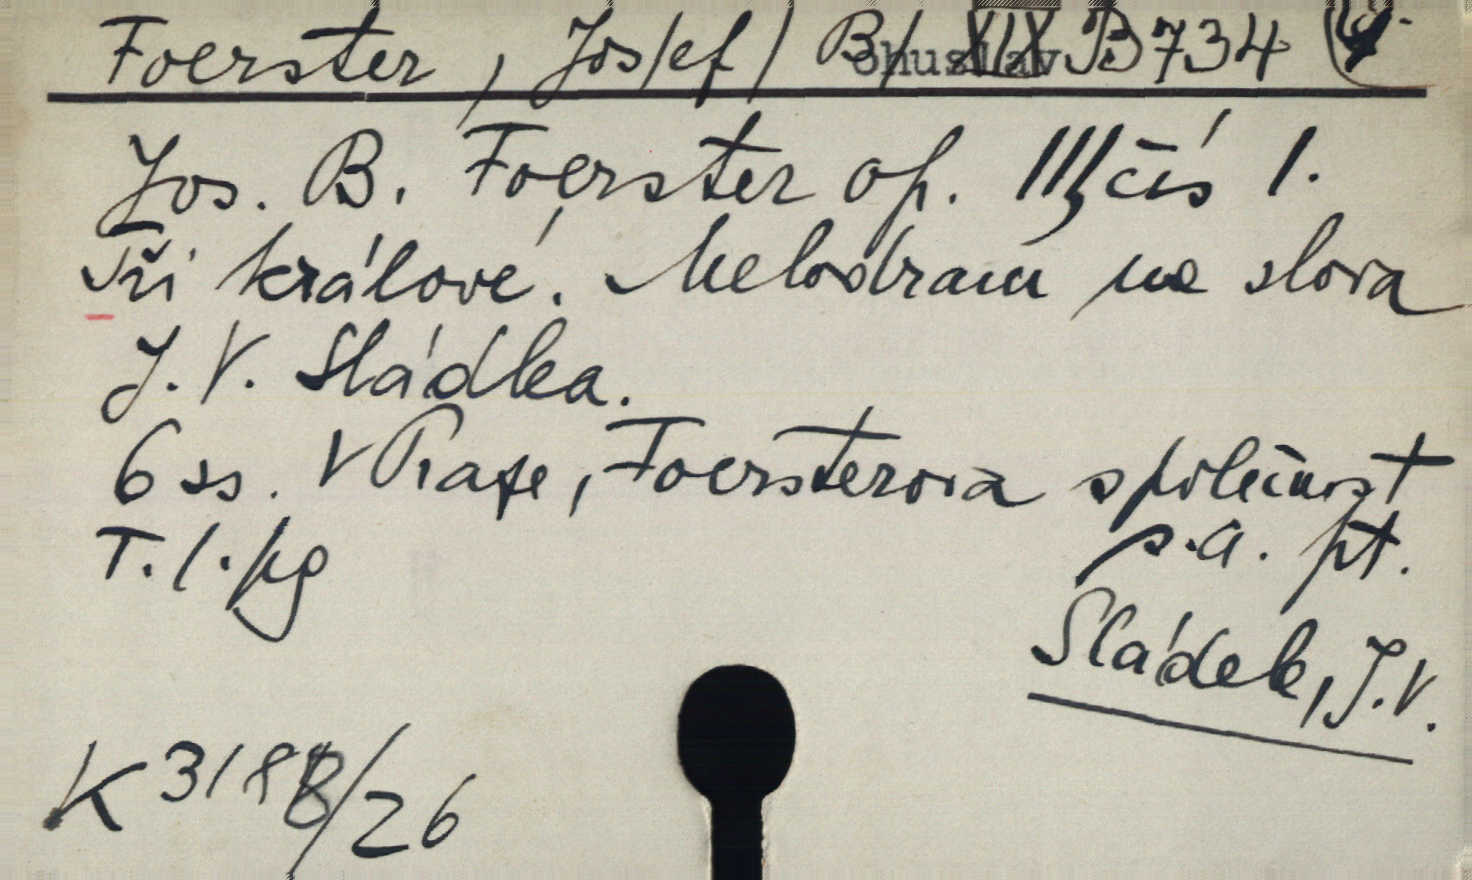 Foerster, Jos/ef/ B/ohuslav XIX B 734
Jos. B. Foerster op. 111, čís 1.
Tři králové. Melodram na slova
J. V. Sládka.
6 ss. V Praze, Foersterova společnost
T. l. pg
s. a. pt.
Sládek, J. V.
K 3188/26